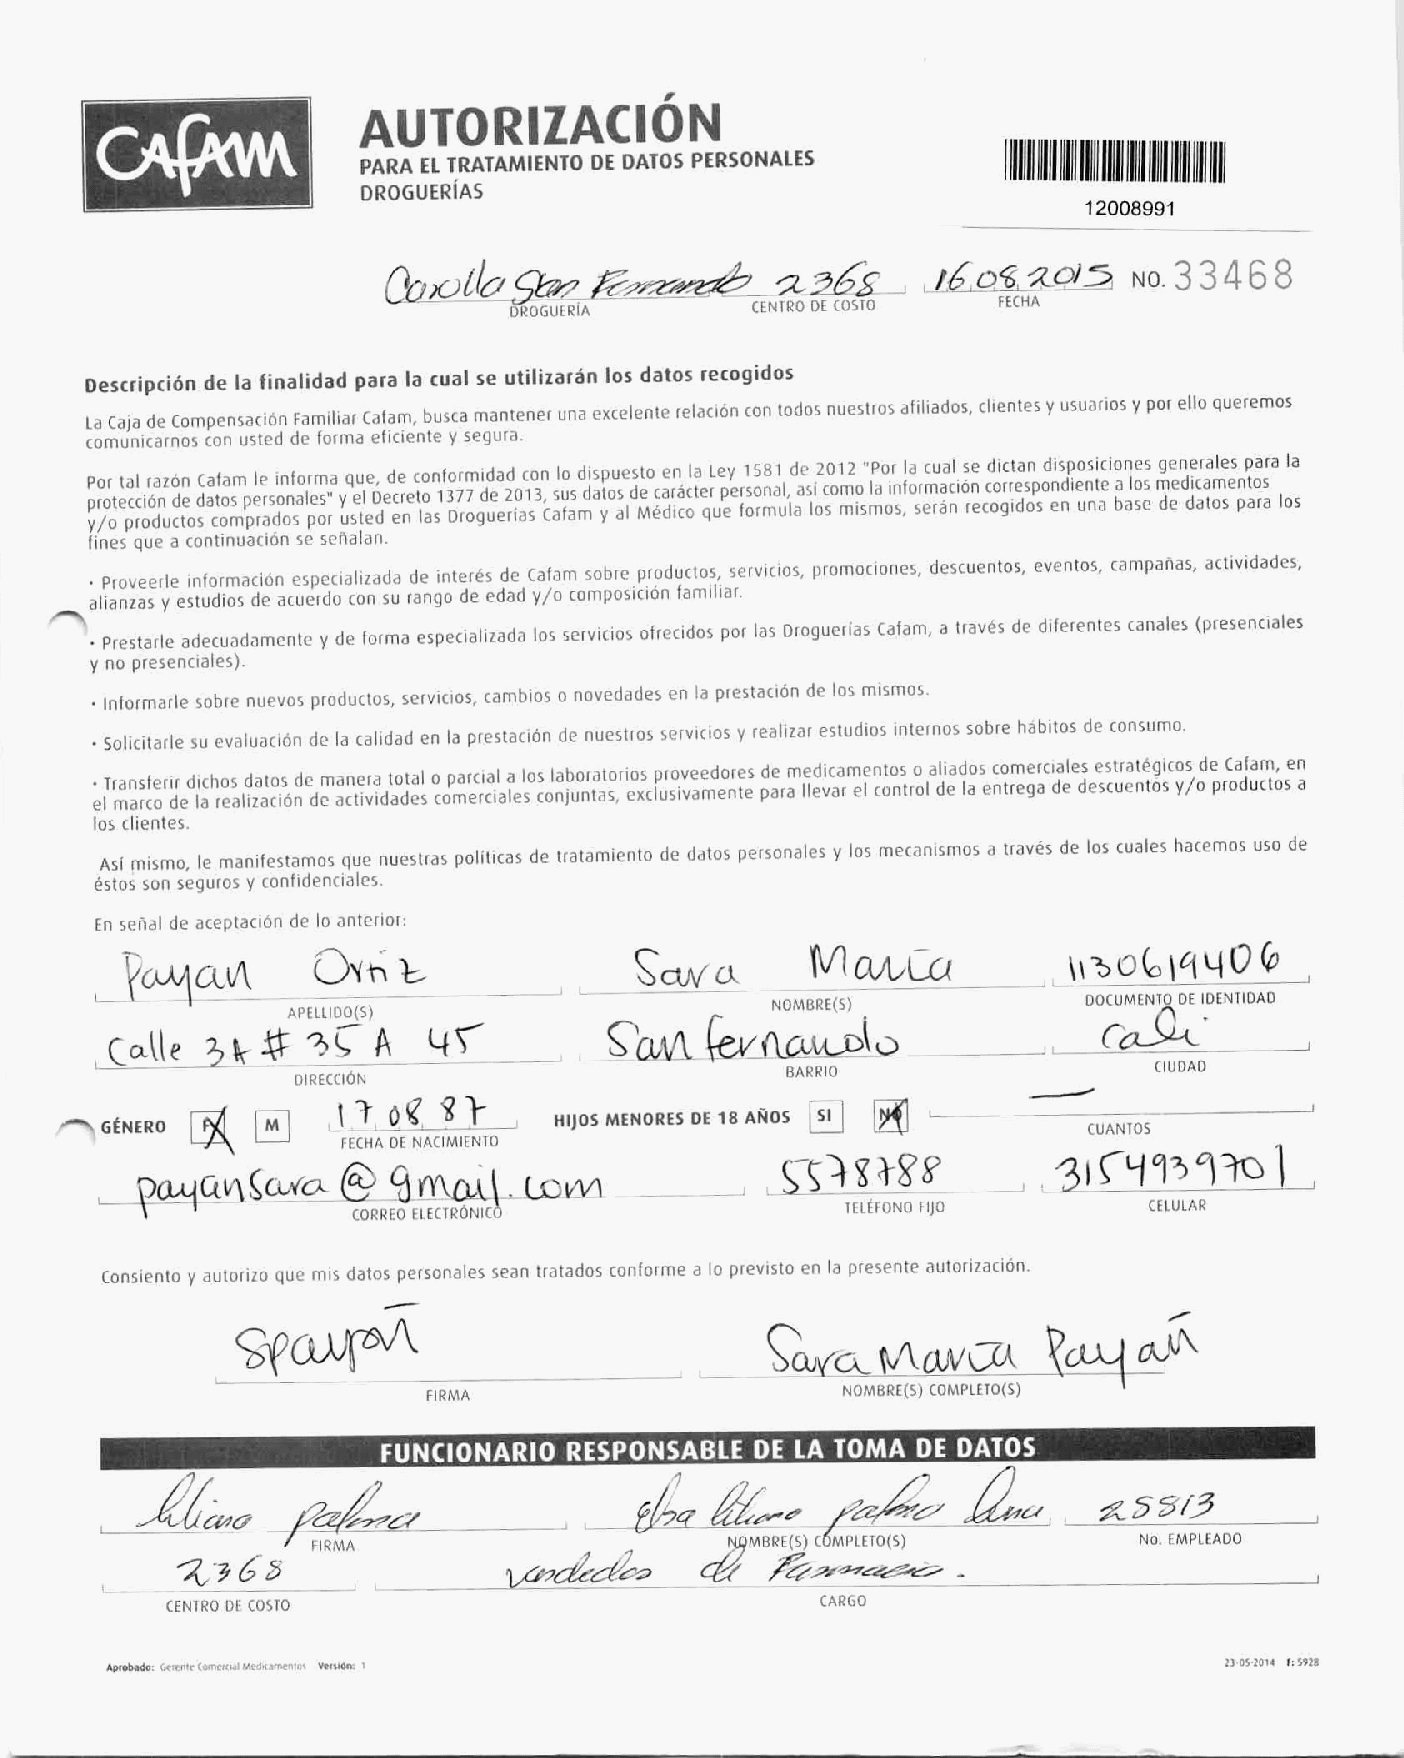 CAFAM
AUTORIZACIÓN
PARA EL TRATAMIENTO DE DATOS PERSONALES
DROGUERÍAS
12008991
San Fernando 2368 16.08.2015 NO. 33468
DROGUERÍA CENTRO DE COSTO FECHA
Descripción de la finalidad para la cual se utilizarán los datos recogidos
La Caja de Compensación Familiar Cafam, busca mantener una excelente relación con todos nuestros afiliados, clientes y usuarios y por ello queremos
comunicarnos con usted de forma eficiente y segura.
Por tal razón Cafam le informa que, de conformidad con lo dispuesto en la Ley 1581 de 2012 "Por la cual se dictan disposiciones generales para la
protección de datos personales" y el Decreto 1377 de 2013, sus datos de carácter personal, así como la información correspondiente a los medicamentos
y/o productos comprados por usted en las Droguerías Cafam y al Médico que formula los mismos, serán recogidos en una base de datos para los
fines que a continuación se señalan.
· Proveerle información especializada de interés de Cafam sobre productos, servicios, promociones, descuentos, eventos, campañas, actividades,
alianzas y estudios de acuerdo con su rango de edad y/o composición familiar.
· Prestarle adecuadamente y de forma especializada los servicios ofrecidos por las Droguerías Cafam, a través de diferentes canales (presenciales
y no presenciales).
· Informarle sobre nuevos productos, servicios, cambios o novedades en la prestación de los mismos.
· Solicitarle su evaluación de la calidad en la prestación de nuestros servicios y realizar estudios internos sobre hábitos de consumo.
· Transferir dichos datos de manera total o parcial a los laboratorios proveedores de medicamentos o aliados comerciales estratégicos de Cafam, en
el marco de la realización de actividades comerciales conjuntas, exclusivamente para llevar el control de la entrega de descuentos y/o productos a
los clientes.
Así mismo, le manifestamos que nuestras políticas de tratamiento de datos personales y los mecanismos a través de los cuales hacemos uso de
éstos son seguros y confidenciales.
En señal de aceptación de lo anterior:
Payan Ortiz Sara Maria 1130619406
APELLIDO(S) NOMBRE(S) DOCUMENTO DE IDENTIDAD
Calle 3A # 35 A 45 San fernando Cali
DIRECCIÓN BARRIO CIUDAD
GÉNERO F M 17 08 87 HIJOS MENORES DE 18 AÑOS SI NO —
FECHA DE NACIMIENTO CUANTOS
payansara@gmail.com 5578788 3154939701
CORREO ELECTRÓNICO TELÉFONO FIJO CELULAR
Consiento y autorizo que mis datos personales sean tratados conforme a lo previsto en la presente autorización.
Spayan Sara Maria Payan
FIRMA NOMBRE(S) COMPLETO(S)
FUNCIONARIO RESPONSABLE DE LA TOMA DE DATOS
liliana palma elsa liliana palma 25813
FIRMA NOMBRE(S) COMPLETO(S) No. EMPLEADO
2368 vendedor de Farmacia.
CENTRO DE COSTO CARGO
Aprobado: Gerente Comercial Medicamentos Versión: 1 23-05-2014 f: 5928